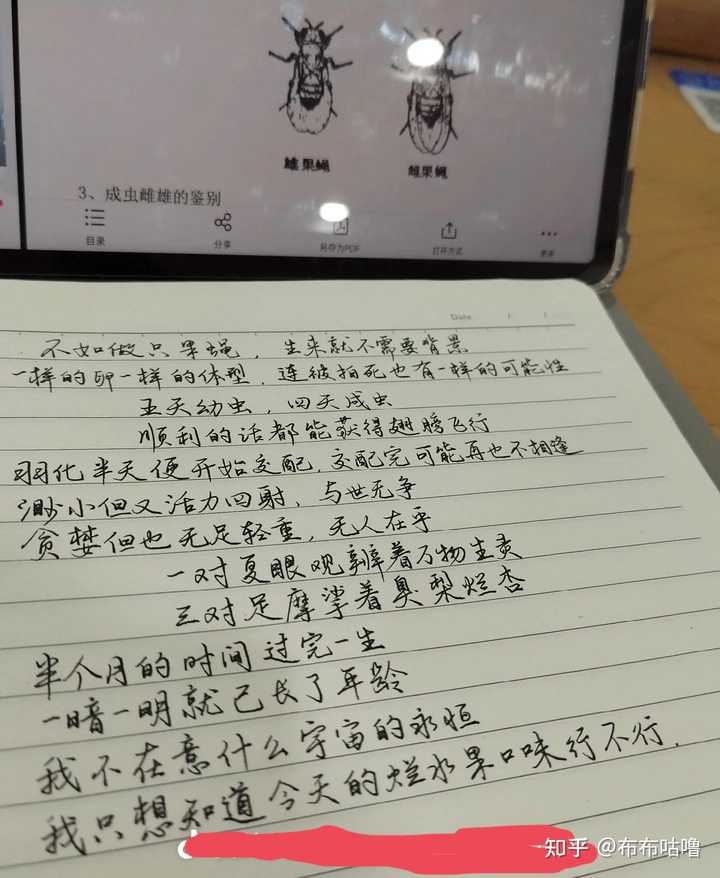 雌果蝇 雄果蝇
3、成虫雌雄的鉴别
目录 分享 另存为PDF 打开方式 更多
Date / /
不如做只果蝇，生来就不需要背景
一样的卵一样的体型，连被拍死也有一样的可能性
五天幼虫，四天成虫
顺利的话都能获得翅膀飞行
羽化半天便开始交配，交配完可能再也不相逢
渺小但又活力四射，与世无争
贪婪但也无足轻重，无人在乎
一对复眼观辨着万物生灵
三对足摩挲着臭梨烂杏
半个月的时间过完一生
一暗一明就已长了年龄
我不在意什么宇宙的永恒
我只想知道今天的烂水果口味行不行.
知乎 @布布咕噜